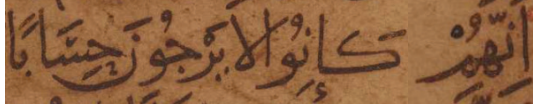 انّهُمْ كَانُوا لا يَرْجُونَ حِسَابًا